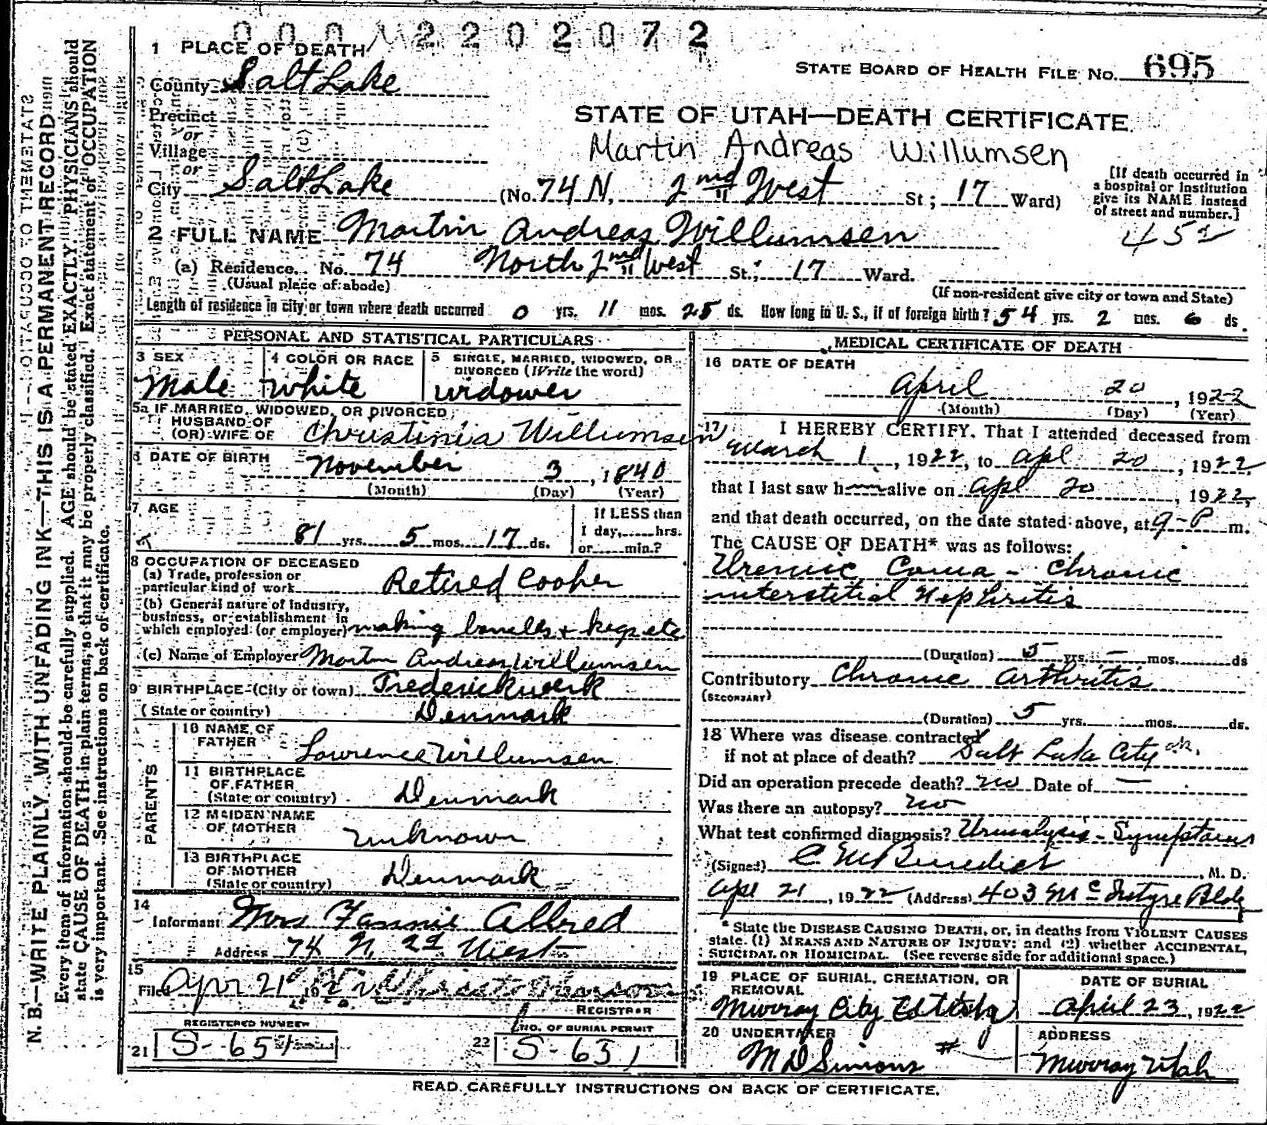 000 2202072
1 PLACE OF DEATH
STATE BOARD OF HEALTH FILE No. 695
County Salt Lake
Precinct
or
Village
or
STATE OF UTAH—DEATH CERTIFICATE
Martin Andreas Willumsen
City Salt Lake (No. 74 N. 2nd West St; 17 Ward)
[If death occurred in a hospital or institution give its NAME instead of street and number.]
452
2 FULL NAME Martin Andreas Willumsen
(a) Residence. No. 74 North 2nd West St; 17 Ward.
(Usual place of abode) (If non-resident give city or town and State)
Length of residence in city or town where death occurred 0 yrs. 11 mos. 25 ds. How long in U. S., if of foreign birth? 54 yrs. 2 mos. 6 ds.
PERSONAL AND STATISTICAL PARTICULARS
3 SEX
Male
4 COLOR OR RACE
White
5 SINGLE, MARRIED, WIDOWED, OR DIVORCED (Write the word)
Widower
5a IF MARRIED, WIDOWED, OR DIVORCED
HUSBAND OF
(OR) WIFE OF Christinia Willumsen
6 DATE OF BIRTH November 3, 1840
(Month) (Day) (Year)
7 AGE
81 yrs. 5 mos. 17 ds.
If LESS than
1 day, hrs.
or min.?
8 OCCUPATION OF DECEASED
(a) Trade, profession or
particular kind of work Retired Cooper
(b) General nature of industry,
business, or establishment in
which employed (or employer) making barrells & kegs etc
(c) Name of Employer Martin Andreas Willumsen
9 BIRTHPLACE (City or town) Frederickwerk
(State or country) Denmark
PARENTS
10 NAME OF
FATHER Lawrence Willumsen
11 BIRTHPLACE
OF FATHER
(State or country) Denmark
12 MAIDEN NAME
OF MOTHER Unknown
13 BIRTHPLACE
OF MOTHER
(State or country) Denmark
14
Informant Mrs Fannie Allred
Address 74 N. 2d West
15
Filed Apr 21
REGISTRAR
REGISTERED NUMBER
21 S-654
NO. OF BURIAL PERMIT
22 S-631
MEDICAL CERTIFICATE OF DEATH
16 DATE OF DEATH
April 20, 1922
(Month) (Day) (Year)
17 I HEREBY CERTIFY, That I attended deceased from
March 1, 1922, to Apl 20, 1922
that I last saw h alive on Apl 20, 1922,
and that death occurred, on the date stated above, at 9-P m.
The CAUSE OF DEATH* was as follows:
Uremic Coma - Chronic
interstitial Nephritis
(Duration) 5 yrs. — mos. ds
Contributory Chronic Arthritis
(SECONDARY)
(Duration) 5 yrs. mos. ds.
18 Where was disease contracted
if not at place of death? Salt Lake City
Did an operation precede death? no Date of —
Was there an autopsy? no
What test confirmed diagnosis? Urinalysis - Symptoms
(Signed) C M Benedict, M. D.
Apl 21, 1922 (Address) 403 McIntyre Bldg
* State the DISEASE CAUSING DEATH, or, in deaths from VIOLENT CAUSES
state (1) MEANS AND NATURE OF INJURY; and (2) whether ACCIDENTAL,
SUICIDAL OR HOMICIDAL. (See reverse side for additional space.)
19 PLACE OF BURIAL, CREMATION, OR REMOVAL
Murray City
DATE OF BURIAL
April 23, 1922
20 UNDERTAKER
M D Simons #
ADDRESS
Murray Utah
READ CAREFULLY INSTRUCTIONS ON BACK OF CERTIFICATE.
N. B.—WRITE PLAINLY, WITH UNFADING INK—THIS IS A PERMANENT RECORD
Every item of information should be carefully supplied. AGE should be stated EXACTLY. PHYSICIANS should
state CAUSE OF DEATH in plain terms, so that it may be properly classified. Exact statement of OCCUPATION
is very important. See instructions on back of certificate.